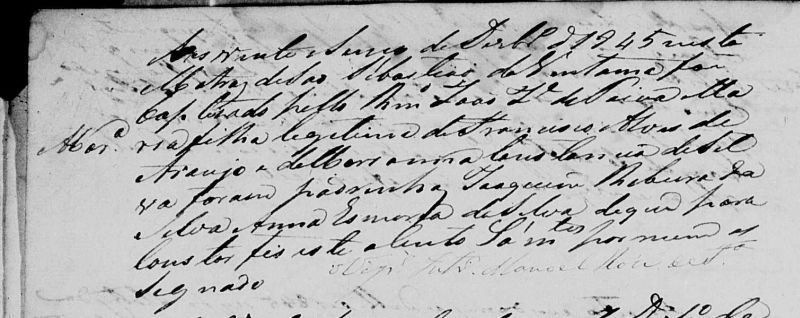 Aos vinte e sinco de Dezbr.º d 1845 nesta
Matriz de Sao Sebastiao da Ventania foi
bap tizado pello Rmº Joao Jº de Ma
Mar.ª ria filha legitima de Francisco Alves de
Araujo e de Marianna Constancia de Sil
va foram padrinhos Joaquim Ribeiro da
Silva Anna Esmeria da Silva de que para
Constar fis este acento por mim as
Signado